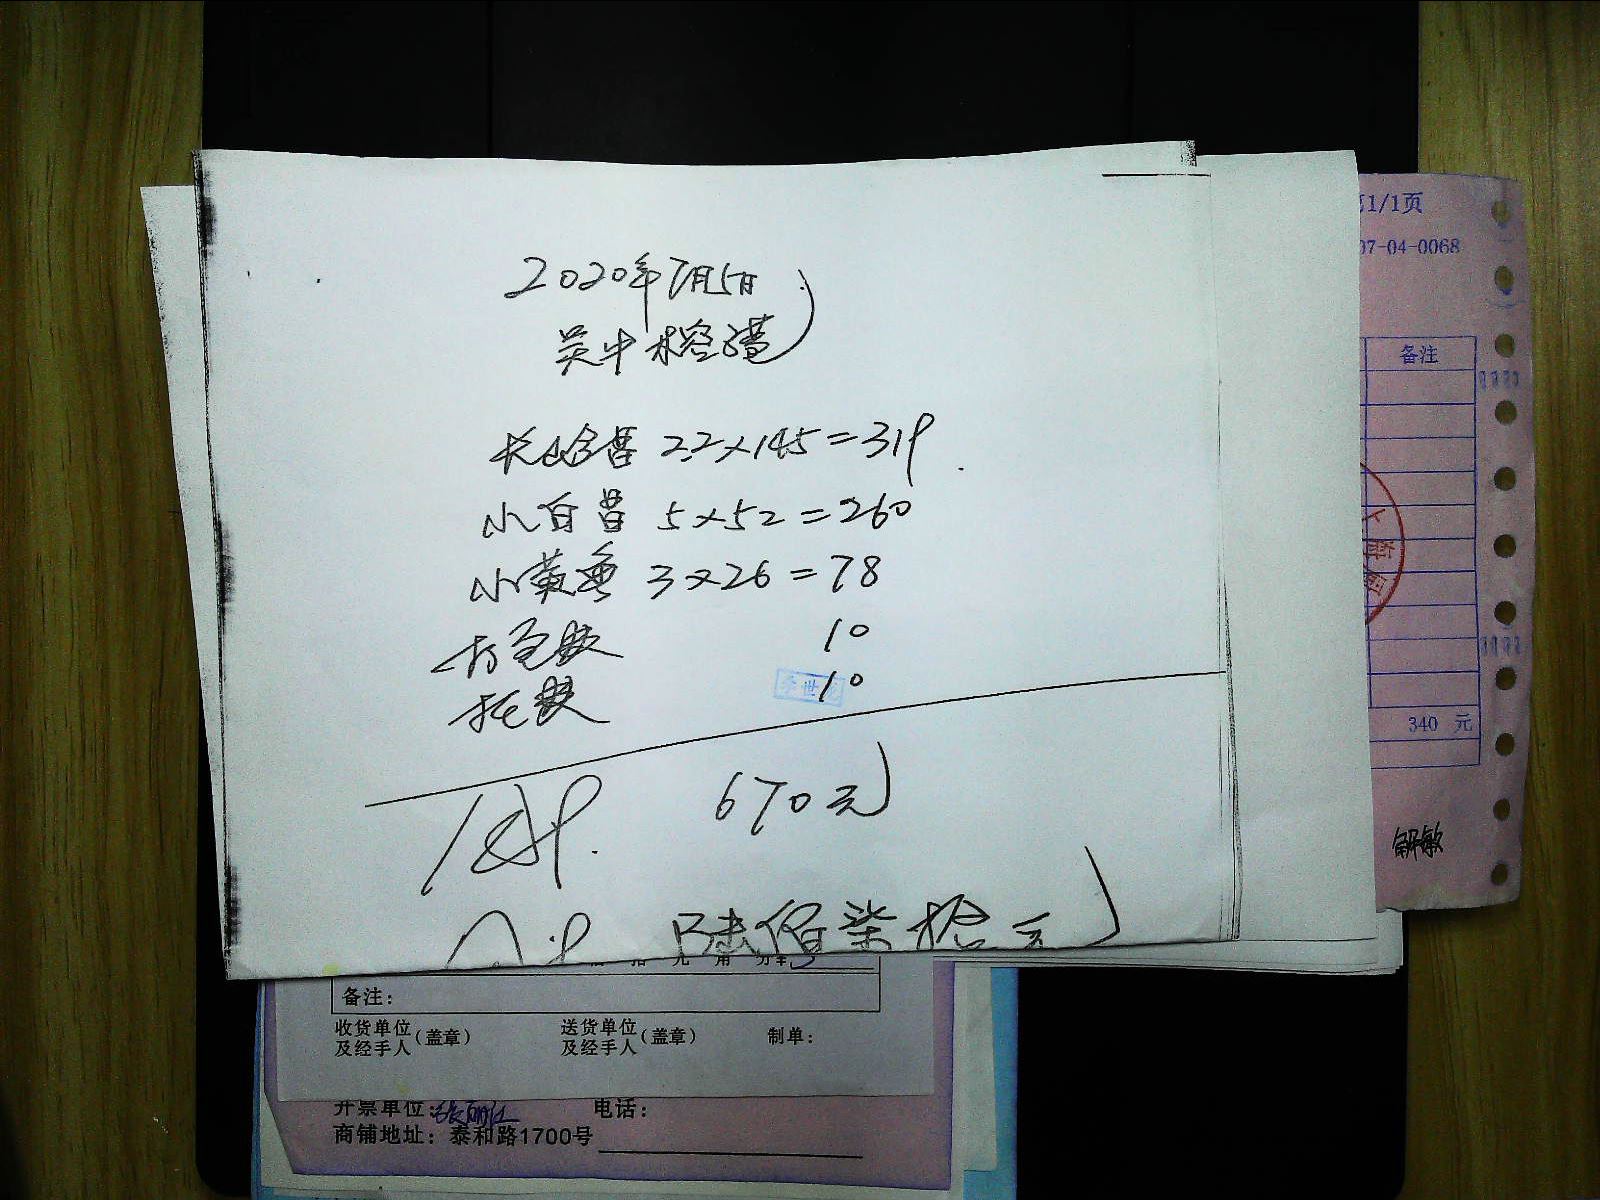 2020年7月5日
吴中榕港
2.2×145=319
小白鲳 5×52=260
小黄鱼 3×26=78
打包费 10
托费 10
670元
陆佰柒拾元
1/1页
07-04-0068
备注
340 元
备注:
收货单位及经手人(盖章)
送货单位及经手人(盖章)
制单:
开票单位:
电话:
商铺地址: 泰和路1700号